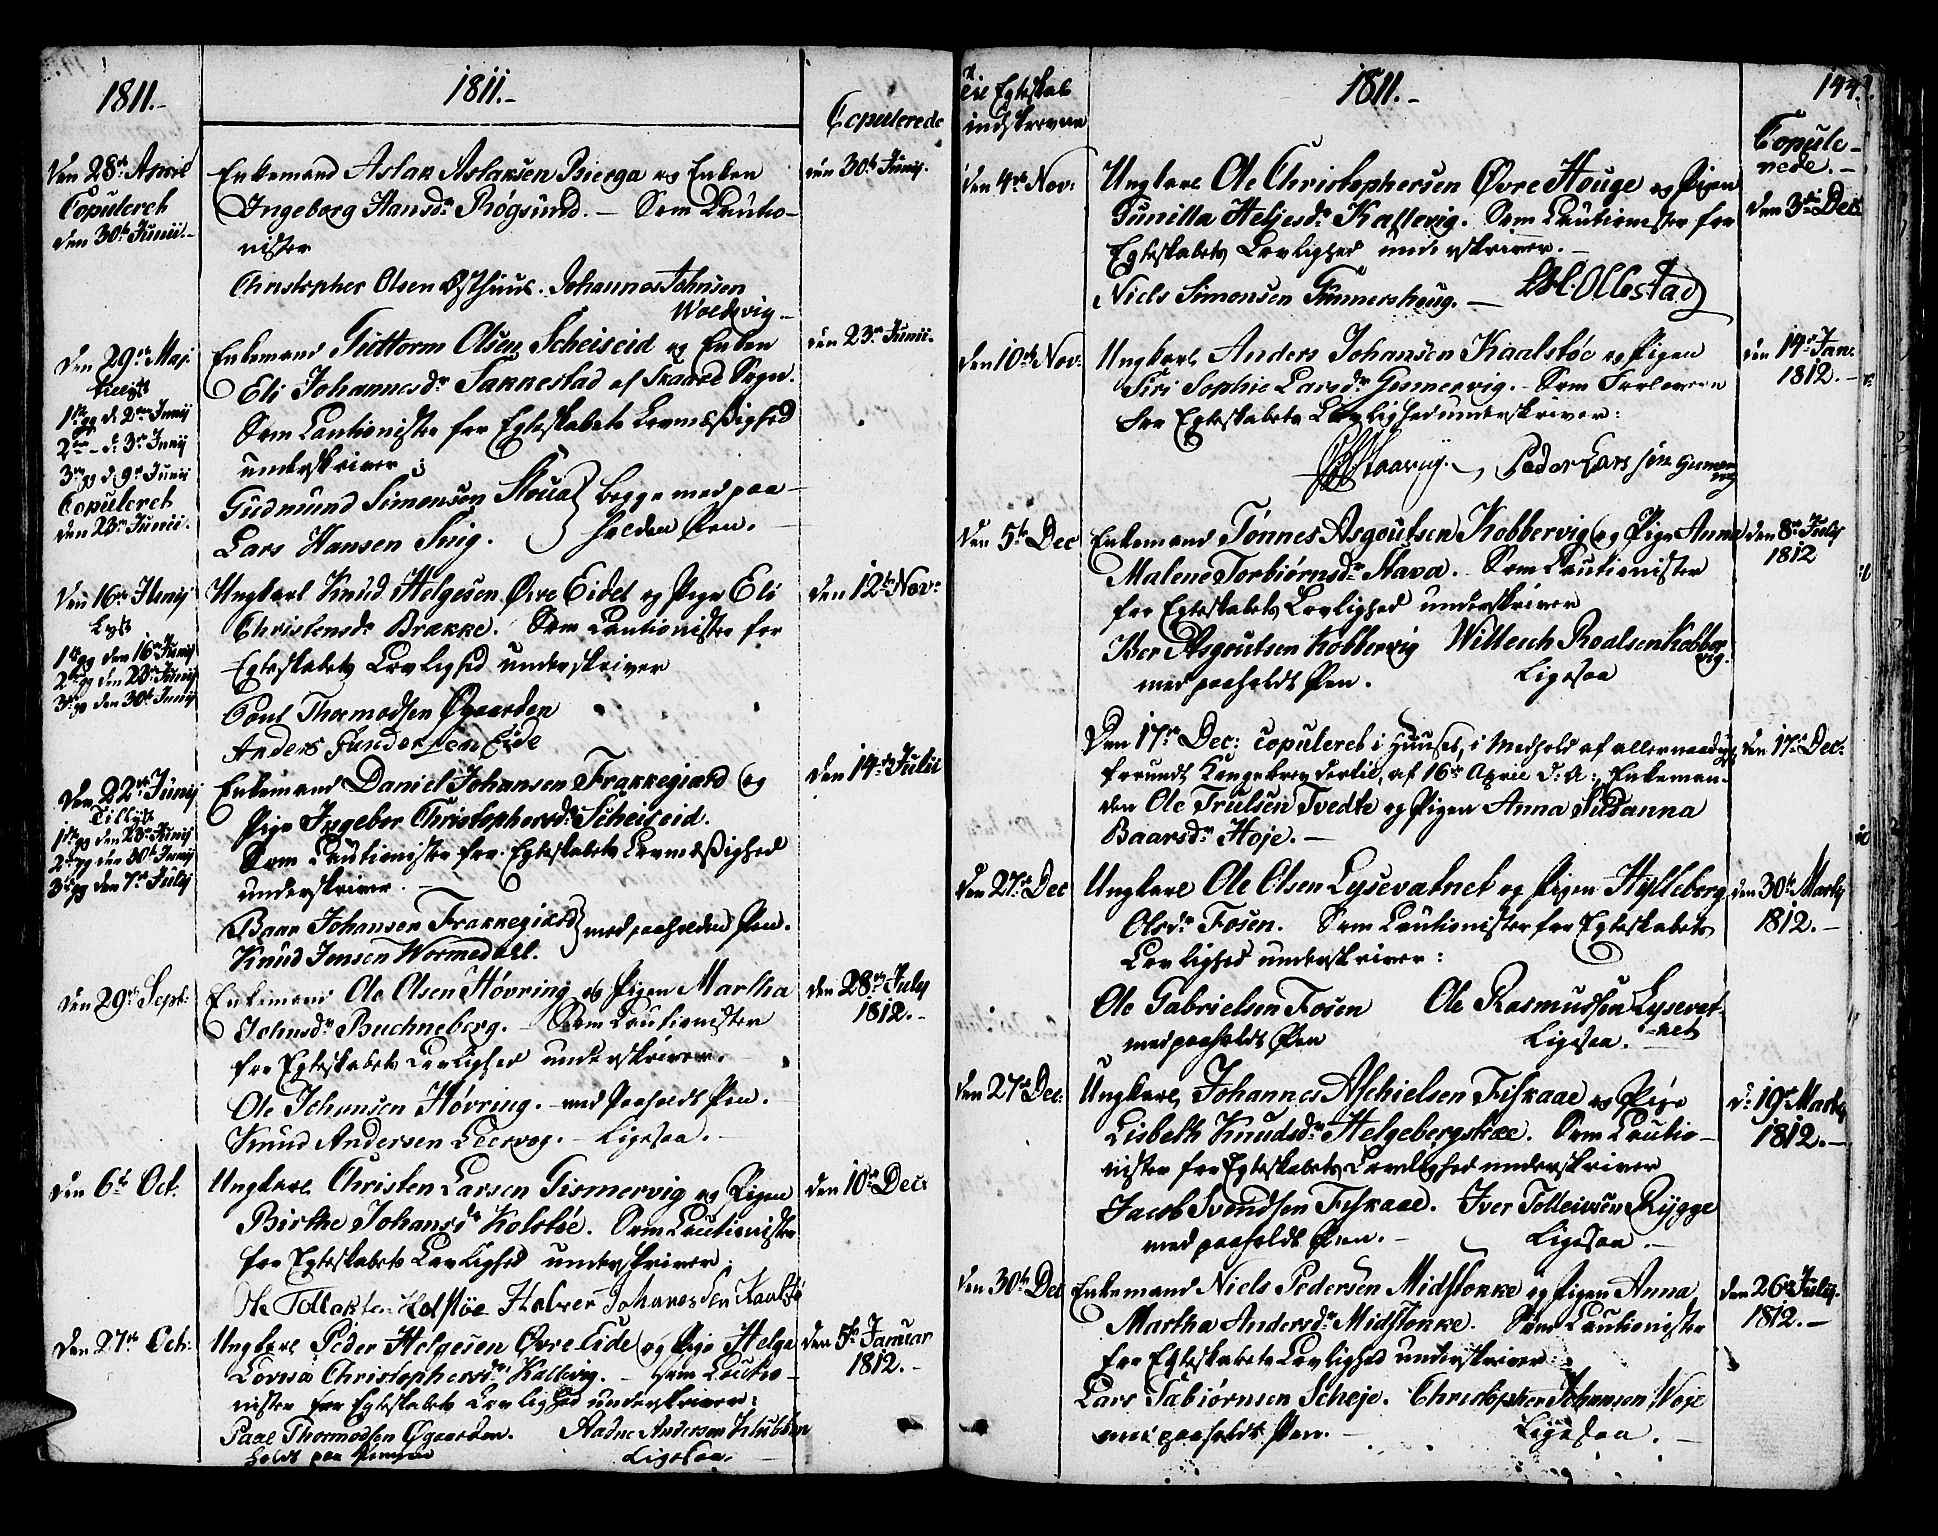 1811.-
1811.-
Copulerede
Den 28de April
Copuleret
den 30te Junii.-
Enkemand Aslak Aslaksen Bierga og Enken
Ingeborg Hansdr Røgsund. - Som Cautio-
nister
Christopher Olsen Østhuus. Johannes Johnsen
Woldsvig.-
den 30te Junij.
Den 29de Maj.
1ste gg d. 2den Junij
2den - d. 3die Junij
3die gg d. 9de Junii
Copuleret
den 23de Junii.
Enkemand Guttorm Olsen Scheiseid og Enken
Eli Johannesdr Sakkestad af Skaare Sogn.
Som Cautionister for Egteskabets Lovmæßighed
underskriver:
Gudmund Simonsen Stoua
Lars Hansen Sŭig.
begge med paa-
holden Pen.
den 23de Junii.
Den 16de Junij
Lyst
1ste gg den 16de Junij
2den gg den 23de Junij
3die gg den 30te Junij
Ungkarl Knud Helgesen Øvre Eidet og Pige Eli
Christensdr Brække. Som Cautionister for
Egteskabets Lovlighed underskriver
Poul Thormodsen Øgaarden
Anders Gundersen Eide
den 12te Novr
Den 22de Junij
Tillyst
1ste gg den 23de Junij
2den gg den 30te Junij
3die gg den 7de Julij
Enkemand Daniel Johansen Frakkegiærd og
Pige Ingebor Christophersdr Scheiseid.
Som Cautionister for Egteskabets Lovmæßighed
underskriver.
Baar Johansen Frakkegiærd
Knud Jensen Wormedall.
med paaholden Pen.
den 14de Julii
den 29de Sept:
Enkemand Ole Olsen Høvring og Pigen Martha
Johnsdr Buchneberg. Som Cautionister
for Egteskabets Lovlighed underskriver.
Ole Johansen Høvring. - med Paaholdt Pen.
Knud Andersen Leervog. - Ligesaa.
den 28de July
1812.-
den 6te Oct.
Ungkarl Christen Larsen Gismervig og Pigen
Birthe Johansdr Kolstöe. Som Cautionister
for Egteskabets Lovlighed underskriver:
Ole Tollaksen Kolstöe Halver Johanesden Kaalstö
den 10de Dec:
den 27de Oct:
Ungkarl Peder Helgesen Øvre Eide og Pige Helga
Lovisa Christophersdr Kallevig. - Som Cautio-
nister for Egteskabets Lovlighed underskriver:
Paal Thormodsen Øgaarden. Aadne Andersen Klubben
holdt paa Pennen Ligesaa.
den 5te Januar
1812.-
Til Egteskab
indskrevne
1811.-
144.
Copule-
rede.-
den 4de Nov:
Ungkarl Ole Christophersen Øvre Houge og Pigen
Gunilla Heljesdr Kallevig. Som Cautionister for
Egteskabets Lovlighed underskriver.-
Niels Simonsen Gunnershoug. - Ollestad
den 3die Dec.
den 10de Nov:
Ungkarl Anders Johansen Kaalstöe og Pigen
Siri Sophie Larsdr Gismervig. - Som Forlovere
for Egteskabets Lovlighed underskriver:
Staarup. -, Peder Larssön Gismer
vig
den 14de Jan:
1812.-
Den 5te Dec
Enkemand Tønnes Asgoutsen Kobbervig og Pige Anna
Malene Torbiørnsdr Stava. Som Cautionister
for Egteskabets Lovlighed underskriver
Iver Asgoutsen Kobbervig Willeich Roalsen Kobber
vig.
med paaholdt Pen. Ligesaa
den 8de July
1812
Den 17de Dec: copuleret i Huuset, i Medhold af allernaadigst
forundt Kongebrev dertil, af 16de April d: A:, Enkeman-
den Ole Trulsen Tvedte og Pigen Anna Susanna
Baarsdr Høje. -
den 17de Dec:
den 27de Dec
Ungkarl Ole Olsen Lysevatnet og Pigen Hylleborg
Olsdr Fosen. Som Cautionister for Egteskabets
Lovlighed underskriver:
Ole Gabrielsen Fosen Ole Rasmusen Lysevat-
-net
med paaholdt Pen Ligesaa.
den 30te Martij
1812.-
den 27de Dec:
Ungkarl Johannes Aschielsen Fiskaae og Pige
Lisbeth Knudsdr Helgebergskæe. Som Cautio-
nister for Egteskabets Lovlighed underskriver
Jacob Svendsen Fiskaae. Iver Tolleivsen Rygge
med paaholdt Pen. - Ligesaa. -
d: 19de Martij
1812.-
den 30te Dec
Enkemand Niels Pedersen Midstokke og Pigen Anna
Martha Andersdr Midstokke. Som Cautionister
for Egteskabets Lovlighed underskriver:
Lars Tabiørnsen Scheje. Christopher Johansen Woje
med paaholdt Pen. - Ligesaa. -
den 26de July.
1812.-